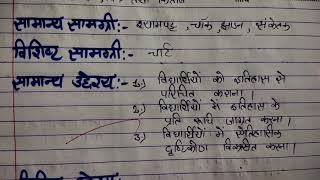 सामान्य सामग्री:- श्यामपट्ट, चॉक, झाडन, संकेतक
विशिष्ट सामग्री:- चार्ट
सामान्य उद्देश्य:- 1.) विद्यार्थियों को इतिहास से
परिचित कराना।
2.) विद्यार्थियों में इतिहास के
प्रति रूचि जागृत करना।
3.) विद्यार्थियों में ऐतिहासिक
दृष्टिकोण विकसित करना।